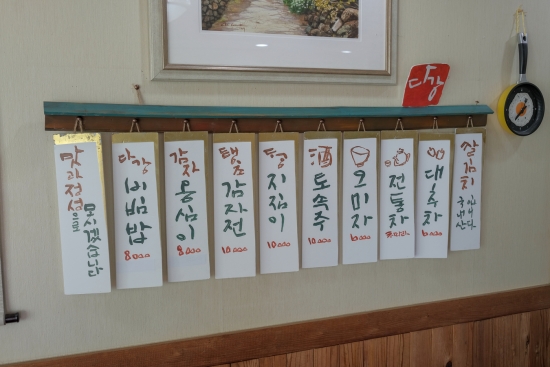 다강
맛과 정성으로
모시겠습니다
다강
비빔밥
8000
감자
옹심이
8000
감자전
10000
지짐이
10000
酒
토속주
10000
오미자
6000
전통차
대추차
6000
쌀 김치
국내산